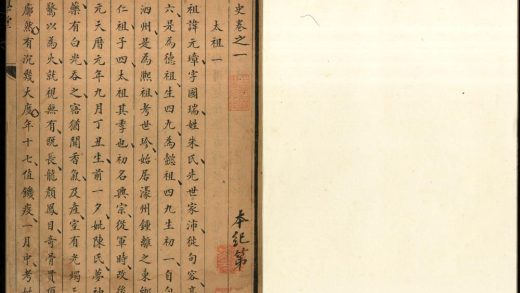 史卷之一
本紀第
太祖一
祖諱元璋字國瑞姓朱氏先世家沛徙句容
六是為德祖生四九為懿祖四九生初一自句
泗州是為熙祖考世珍始居濠州鍾離之東鄉
仁祖子四太祖其季也初名興宗從軍時改
元天曆元年九月丁丑生前一夕妣陳氏夢神
藥有白光吞之寤猶聞香氣及產室有光燭
驚以為火就視無有既長龍顏鳳目奇骨貫
廓然有沉幾大度年十七值饑疫一月中考
堂